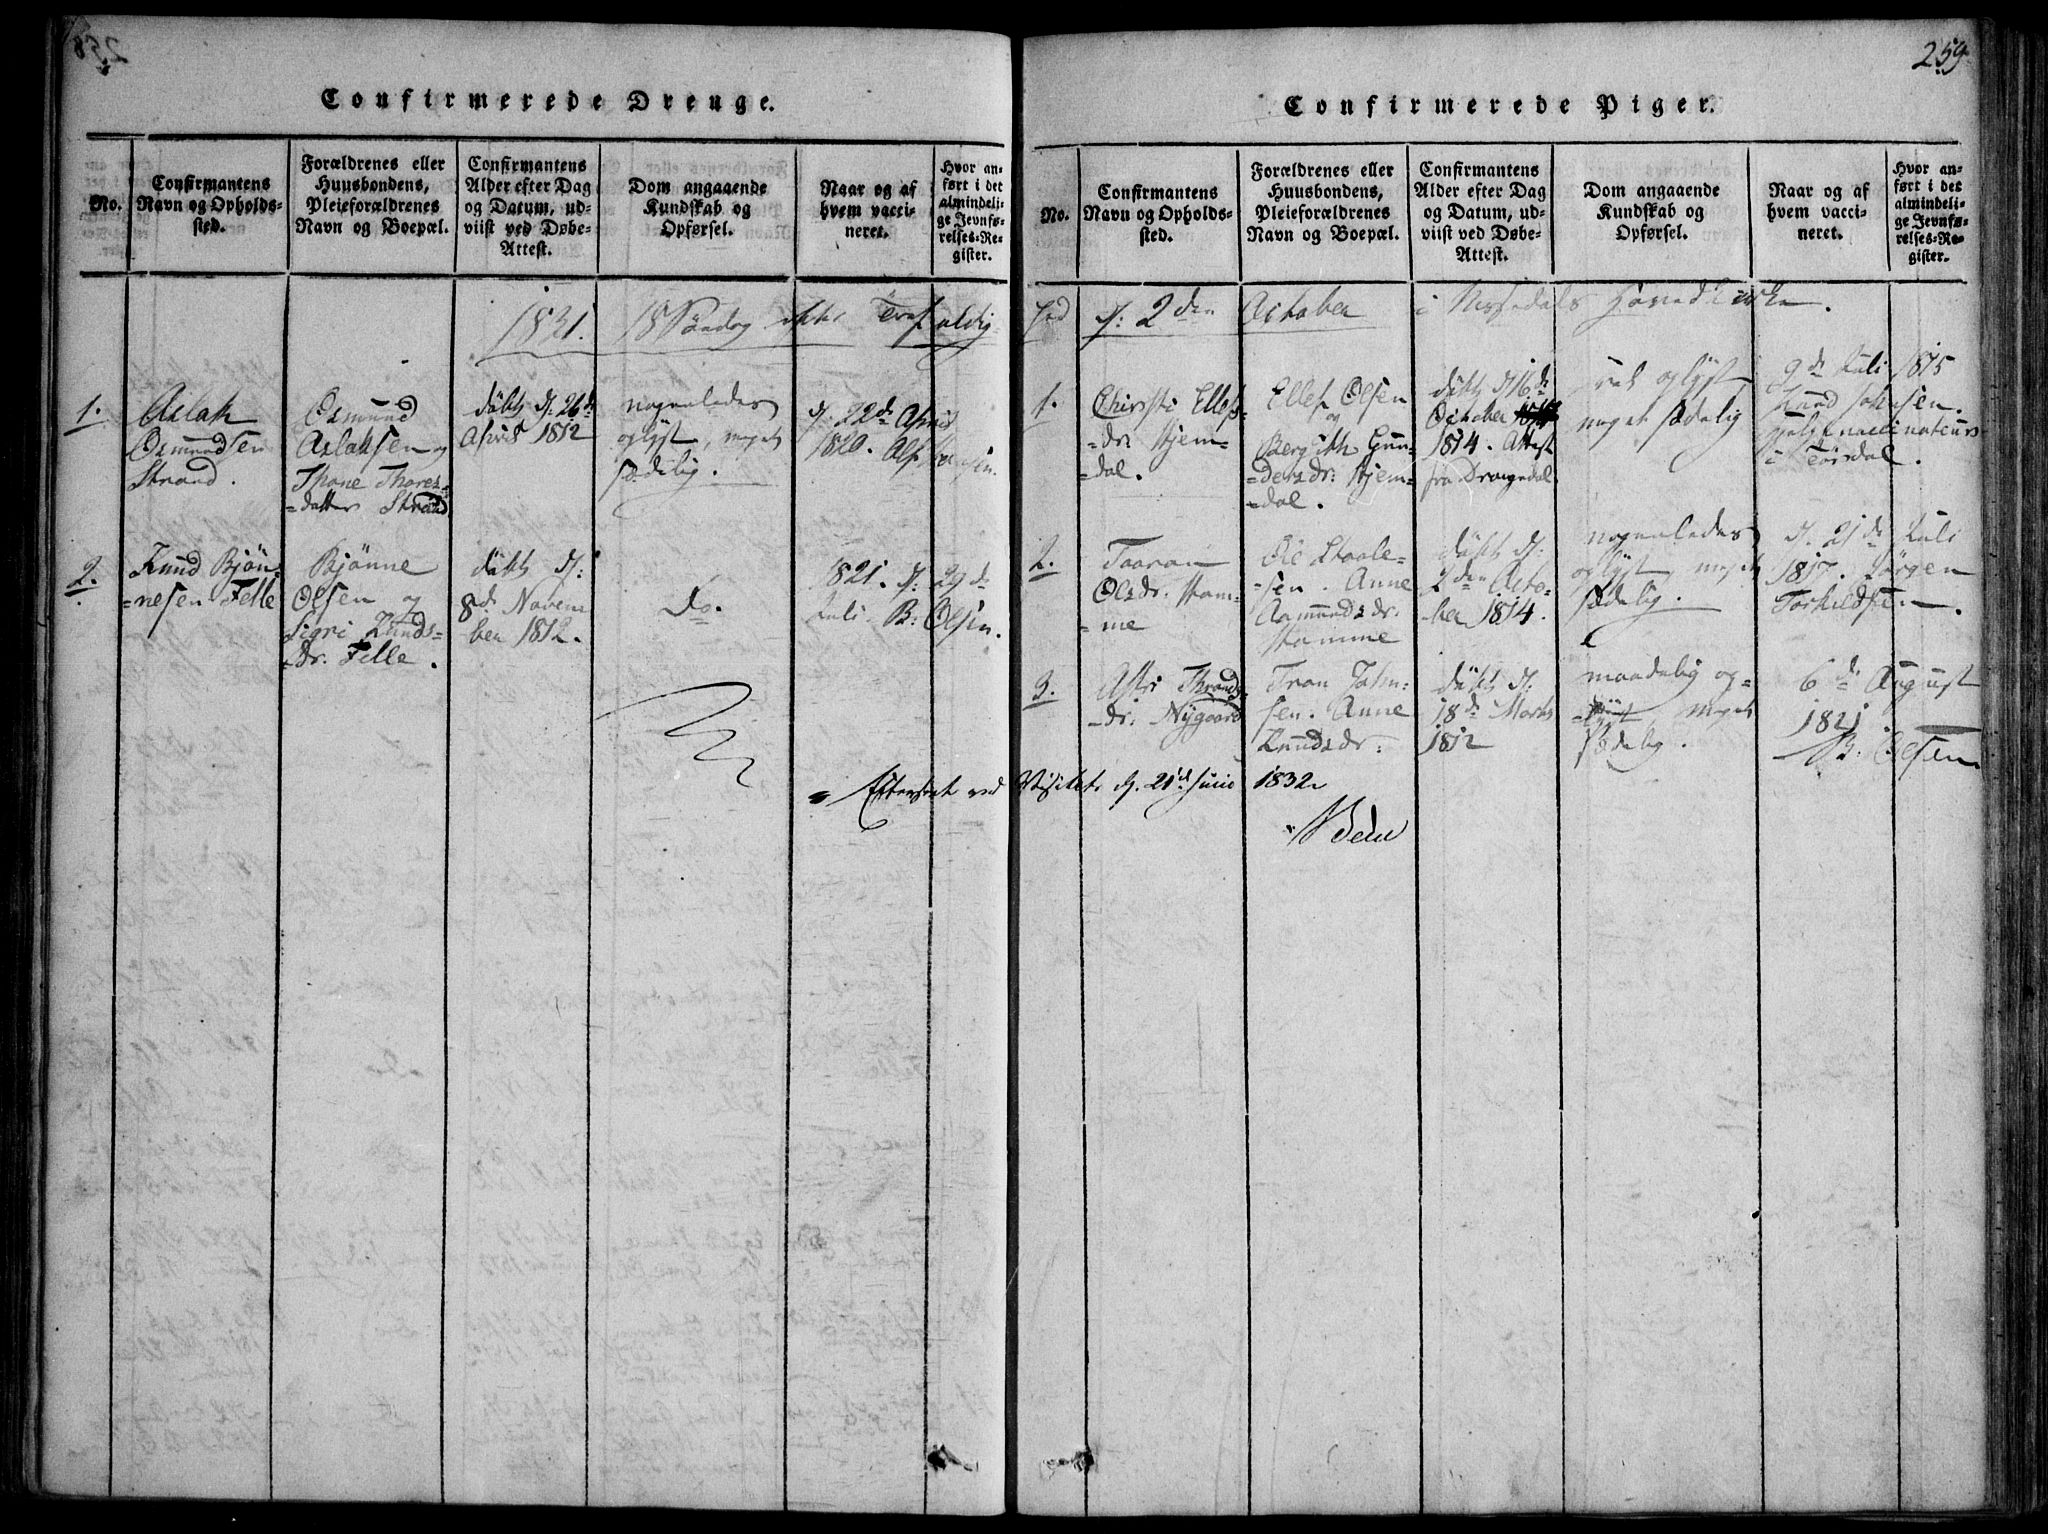 259.
Confirmerede Drenge.
No.
Confirmantens
Navn og Opholds-
sted.
Forældrenes eller
Huusbondens,
Pleieforældrenes
Navn og Boepæl.
Confirmantens
Alder efter Dag
og Datum, ud-
viist ved Døbe-
Attest.
Dom angaaende
Kundskab og
Opførsel.
Naar og af
hvem vacci-
neret.
Hvor an-
ført i det
almindeli-
ge Jevnfø-
relses-Re-
gister.
1831. 18 Söndag efter Trefoldig
1.
Aslak
Osmundsen
Strand.
Osmund
Aslaksen og
Thone Thores-
-datter Strand
döbt d: 26de
April 1812
nogenledes
oplyst, meget
sædelig.
d. 22de April
1820. Alf Hansen.
2.
Knud Bjön-
-nesen Felle
Bjönne
Olsen og
Sigri Knuds-
-dr. Felle.
döbt d:
8de Novem
ber 1812.
do.
1821. d. 29de
Juli. B. Olsen.
Confirmerede Piger.
No.
Confirmantens
Navn og Opholds-
sted.
Forældrenes eller
Huusbondens,
Pleieforældrenes
Navn og Boepæl.
Confirmantens
Alder efter Dag
og Datum, ud-
viist ved Døbe-
Attest.
Dom angaaende
Kundskab og
Opførsel.
Naar og af
hvem vacci-
neret.
Hvor an-
ført i det
almindeli-
ge Jevnfø-
relses-Re-
gister.
d: 2den October i Nissedals Hovedkirke.
1.
Christi Ellefs-
dr. Hjem-
-dal.
Ellef Olsen
og
Bergith Gun-
-dersdr: Hjem-
-dal.
döbt d 16de
October
1814. Attest
fra Drangedal.
ret oplyst
meget sædelig
9de Juli 1815
Knud Johnsen.
Hjelpevaccinateur
i Törsdal.
2.
Taaran
Olsdr. Ham-
-me
Ole Staale-
-sen. Anne
Aamundsdr.
Hamme
döbt d:
2den Octo-
-ber 1814.
nogenledes
oplyst, meget
sædelig.
d. 21de Juli
1817. Jörgen
Torkildsen.
3.
Astri Thrands-
-dr. Nygaard
Tron John-
sen. Anne
Knudsdr:
döbt d:
18de Marts
1812
maadelig op-
-lyst, meget
sædelig.
6de August
1821
B. Olsen
Efterseet ved Visitats d. 21de Junio 1832.